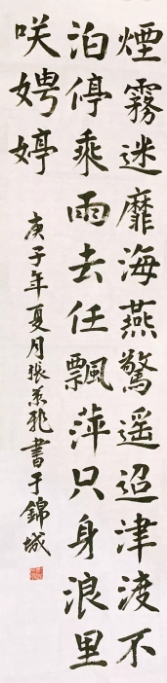 煙霧迷靡海燕驚遥迢津渡不
泊停乘雨去任飄萍只身浪里
咲娉婷
庚子年夏月張景乾書于錦城